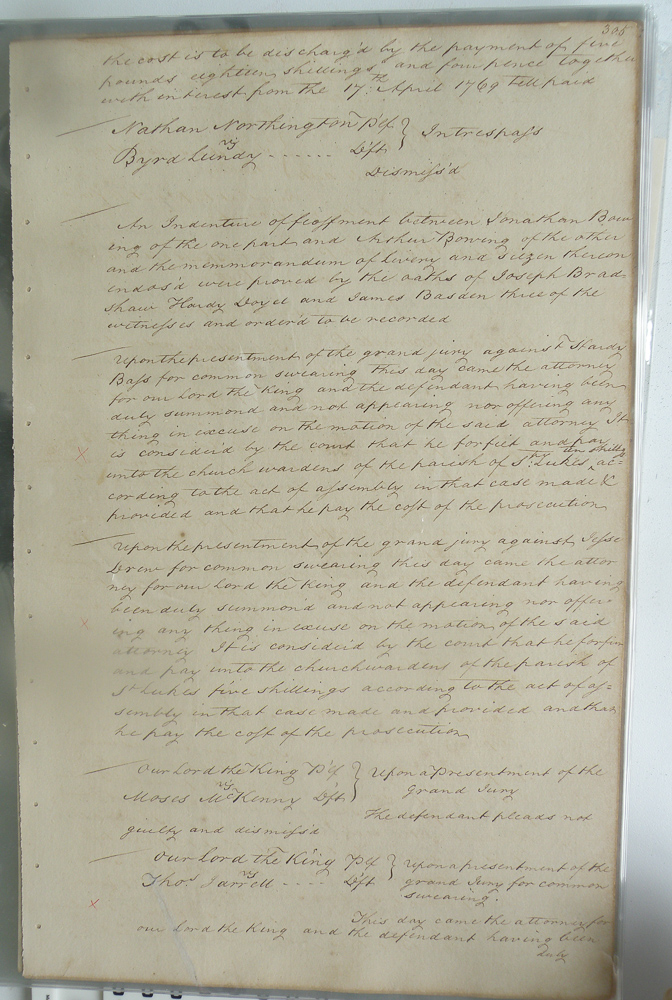 305
the cost is to be discharg'd by the payment of five
pounds eighteen shillings and four pence together
with interest from the 17th April 1769 till paid
Nathan Northington Plf } In trespass
vs
Byrd Lundy ------ Dft
Dismiss'd
An Indenture of feoffment between Jonathan Bow
ing of the one part and Arthur Bowing of the other
and the memmorandum of livery and seizen thereon
endors'd were proved by the oaths of Joseph Brad-
shaw Hardy Doyel and James Basden three of the
witnesses and order'd to be recorded
Upon the presentment of the grand jury against Hardy
Bass for common swearing this day came the attorney
for our Lord the King and the defendant having been
duly summond and not appearing nor offering any
thing in excuse on the motion of the said attorney It
is consider'd by the court that he forfeit and pay
ten shillgs
unto the church wardens of the parish of St. Lukes ac=
cording to the act of assembly in that case made &
provided and that he pay the cost of the prosecution
Upon the presentment of the grand jury against Jesse
Drew for common swearing this day came the attor
ney for our Lord the King and the defendant having
been duly summond and not appearing nor offer-
ing any thing in excuse on the motion of the said
attorney It is consider'd by the court that he forfin
and pay unto the churchwardens of the parish of
St Lukes five shillings according to the act of as=
sembly in that case made and provided and that
he pay the cost of the prosecution
Our Lord the King Plf } Upon a Presentment of the
vs
Moses McKenny Dft Grand Jury
The defendant pleads not
guilty and dismiss'd
Our Lord the King Plf } Upon a presentment of the
vs
Thos. Jarrell ---- Dft grand Jury for common
swearing.
This day came the attorney for
our Lord the King and the defendant having been
duly